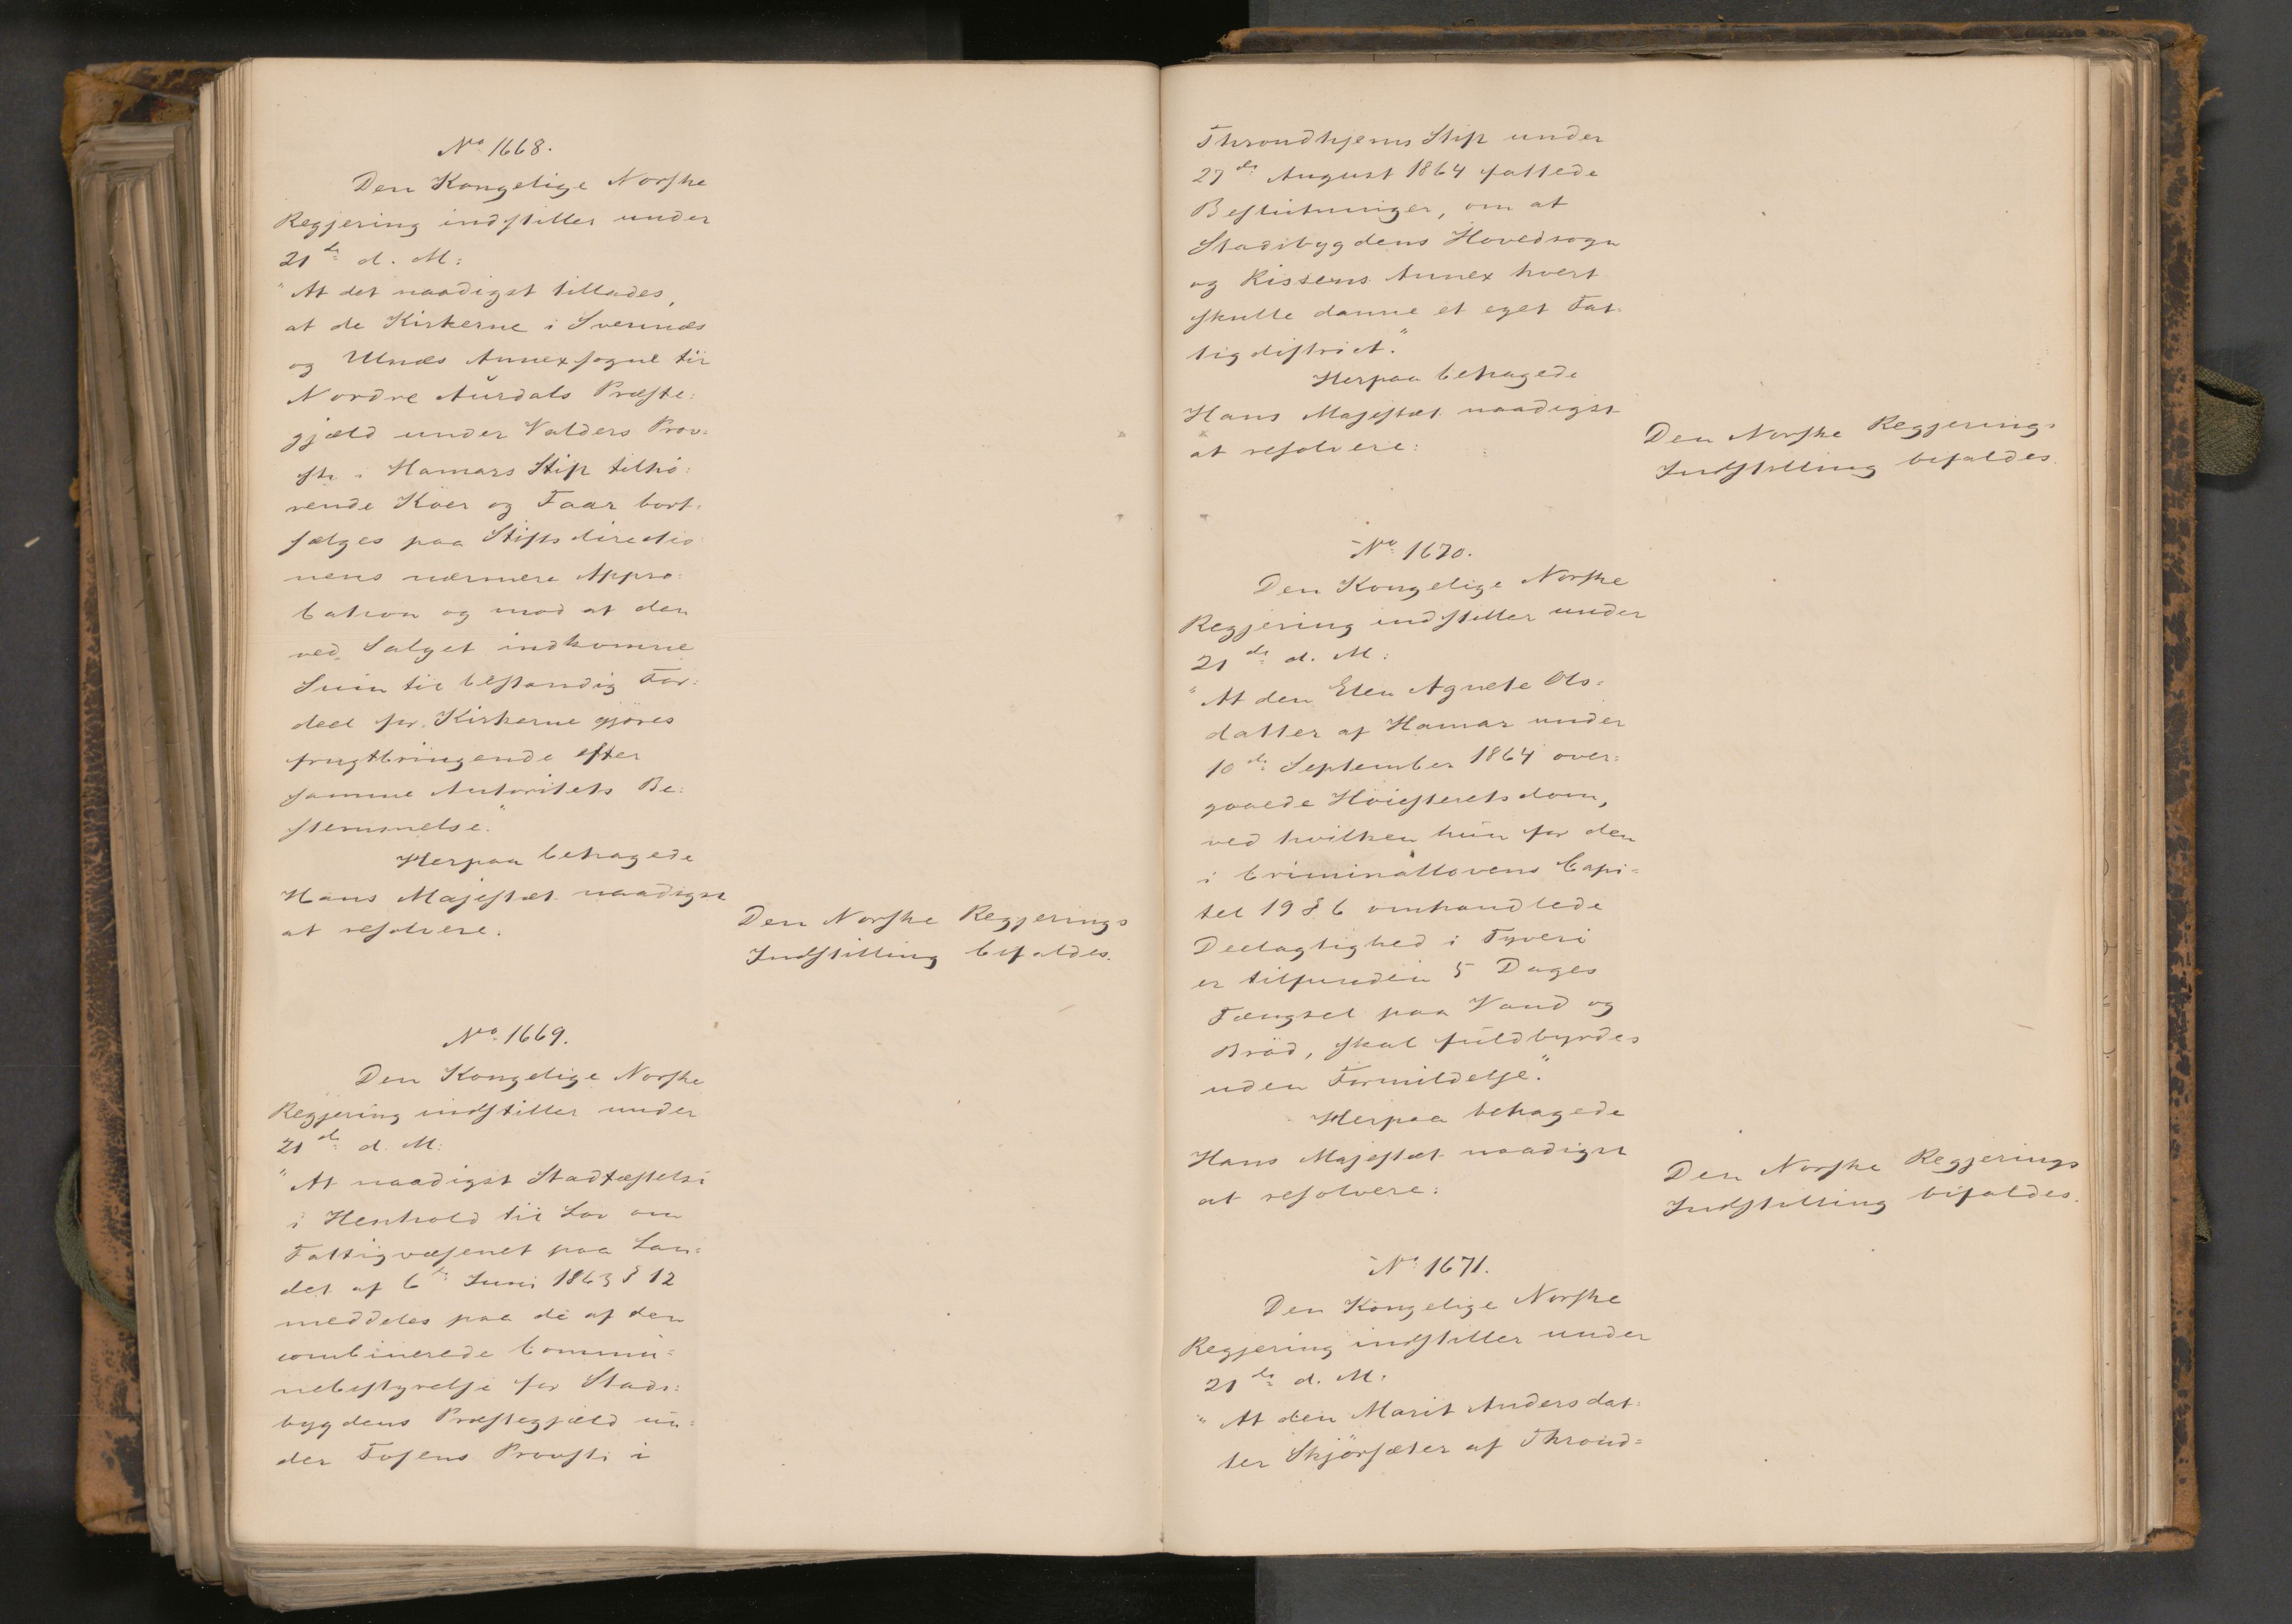 No 1668.
Den Kongelige Norske
Regjering indstiller under
21de d. M:
"At det naadigst tillades,
at de Kirkerne i Svennæs
og Ulnæs Annexsogne til
Nordre Aurdals Præste:
gjæld under Valders Prov:
sti i Hamars Stift tilhö:
rende Köer og Faar bort:
sælges paa Stiftsdirectio
nens nærmere Appro:
bation og mod at den
ved Salget indkomne
Sum til bestandig For:
deel for Kirkerne gjöres
frugtbringende efter
samme Autoritets Be:
stemmelse."
Herpaa behagede
Hans Majestæt naadigst
at resolvere:
Den Norske Regjerings
Indstilling bifaldes.
No 1669.
Den Kongelige Norske
Regjering indstiller under
21de d. M:
"At naadigst Stadfæstelse
i Henhold til Lov om
Fattigvæsenet paa Lan:
det af 6te Juni 1863 § 12
meddeles paa de af den
combinerede Commu=
nebestyrelse for Stads:
bygdens Præstegjæld un:
der Fosens Provsti i
Throndhjems Stift under
27de August 1864 fattede
Beslutninger, om at
Stadsbygdens Hovedsogn
og Rissens Annex hvert
skulle danne et eget Fat:
tigdistrict."
Herpaa behagede
Hans Majestæt naadigst
at resolvere:
Den Norske Regjerings
Indstilling bifaldes.
No 1670.
Den Kongelige Norske
Regjering indstiller under
21de d. M:
"At den Elen Agnete Ols=
datter af Hamar under
10de September 1864 over:
gaaede Höiesteretsdom,
ved hvilken hun for den
i Criminallovens Capi=
tel 19 § 6 omhandlede
Deelagtighed i Tyveri
er tilfunden 5 Dages
Fængsel paa Vand og
Bröd, skal fuldbyrdes
uden Formildelse."
Herpaa behagede
Hans Majestæt naadigst
at resolvere:
Den Norske Regjerings
Indstilling bifaldes.
No 1671.
Den Kongelige Norske
Regjering indstiller under
21de d. M:
"At den Marit Andersdat:
ter Skjörsæter af Thrond=